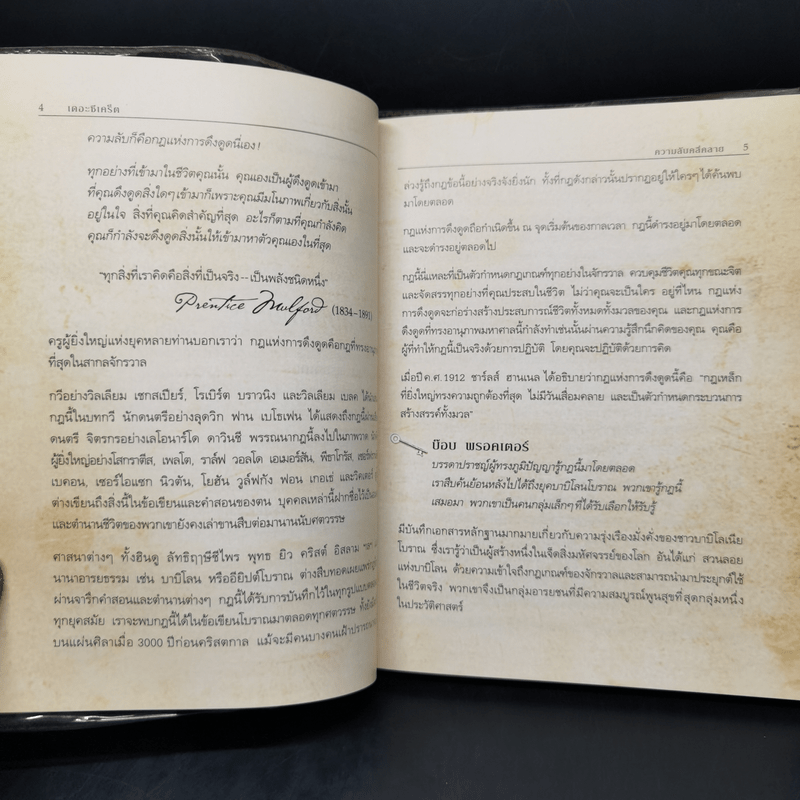 4 เดอะซีเคร็ต
ความลับก็คือกฎแห่งการดึงดูดนี่เอง!
ทุกอย่างที่เข้ามาในชีวิตคุณนั้น คุณเองเป็นผู้ดึงดูดเข้ามา
ที่คุณดึงดูดสิ่งใดๆ เข้ามาก็เพราะคุณมีมโนภาพเกี่ยวกับสิ่งนั้น
อยู่ในใจ สิ่งที่คุณคิดสำคัญที่สุด อะไรก็ตามที่คุณกำลังคิด
คุณก็กำลังจะดึงดูดสิ่งนั้นให้เข้ามาหาตัวคุณเองในที่สุด
"ทุกสิ่งที่เราคิดคือสิ่งที่เป็นจริง--เป็นพลังชนิดหนึ่ง"
Prentice Mulford (1834-1891)
ครูผู้ยิ่งใหญ่แห่งยุคหลายท่านบอกเราว่า กฎแห่งการดึงดูดคือกฎที่ทรงอานุภาพ
ที่สุดในสากลจักรวาล
กวีอย่างวิลเลียม เชกสเปียร์, โรเบิร์ต บราวนิง และวิลเลียม เบลค ได้
กฎนี้ในบทกวี นักดนตรีอย่างลุดวิก ฟาน เบโธเฟน ได้แสดงถึงกฎนี้ผ่าน
ดนตรี จิตรกรอย่างเลโอนาร์โด ดาวินชี พรรณนากฎนี้ลงไปในภาพวาด
ผู้ยิ่งใหญ่อย่างโสกราตีส, เพลโต, ราล์ฟ วอลโด เอเมอร์สัน, พีธาโกรัส, เซอร์ฟรานซิส
เบคอน, เซอร์ไอแซก นิวตัน, โยฮัน วูล์ฟกัง ฟอน เกอเธ่ และวิคเตอร์
ต่างเขียนถึงสิ่งนี้ในข้อเขียนและคำสอนของตน บุคคลเหล่านี้ฝากชื่อไว้เป็น
และตำนานชีวิตของพวกเขายังคงเล่าขานสืบต่อมานานนับศตวรรษ
ศาสนาต่างๆ ทั้งฮินดู ลัทธิฤาษีชีไพร พุทธ ยิว คริสต์ อิสลาม
นานาอารยธรรม เช่น บาบิโลน หรืออียิปต์โบราณ ต่างสืบทอดเผยแพร่
ผ่านจารึกคำสอนและตำนานต่างๆ กฎนี้ได้รับการบันทึกไว้ในทุกรูปแบบ
ทุกยุคสมัย เราจะพบกฎนี้ได้ในข้อเขียนโบราณมาตลอดทุกศตวรรษ
บนแผ่นศิลาเมื่อ 3000 ปีก่อนคริสตกาล แม้จะมีคนบางคนเฝ้าปรารถนา
ความลับคลี่คลาย 5
ล่วงรู้ถึงกฎข้อนี้อย่างจริงจังยิ่งนัก ทั้งที่กฎดังกล่าวนั้นปรากฏอยู่ให้ใครๆ ได้ค้นพบ
มาโดยตลอด
กฎแห่งการดึงดูดถือกำเนิดขึ้น ณ จุดเริ่มต้นของกาลเวลา กฎนี้ดำรงอยู่มาโดยตลอด
และจะดำรงอยู่ตลอดไป
กฎนี้นี่แหละที่เป็นตัวกำหนดกฎเกณฑ์ทุกอย่างในจักรวาล ควบคุมชีวิตคุณทุกขณะจิต
และจัดสรรทุกอย่างที่คุณประสบในชีวิต ไม่ว่าคุณจะเป็นใคร อยู่ที่ไหน กฎแห่ง
การดึงดูดจะก่อร่างสร้างประสบการณ์ชีวิตทั้งหมดทั้งมวลของคุณ และกฎแห่งการ
ดึงดูดที่ทรงอานุภาพมหาศาลนี้กำลังทำเช่นนั้นผ่านความรู้สึกนึกคิดของคุณ คุณคือ
ผู้ที่ทำให้กฎนี้เป็นจริงด้วยการปฏิบัติ โดยคุณจะปฏิบัติด้วยการคิด
เมื่อปี ค.ศ. 1912 ชาร์ลส์ ฮานเนล ได้อธิบายว่ากฎแห่งการดึงดูดนี้คือ "กฎเหล็ก
ที่ยิ่งใหญ่ทรงความถูกต้องที่สุด ไม่มีวันเสื่อมคลาย และเป็นตัวกำหนดกระบวนการ
สร้างสรรค์ทั้งมวล"
บ๊อบ พรอคเตอร์
บรรดาปราชญ์ผู้ทรงภูมิปัญญารู้กฎนี้มาโดยตลอด
เราสืบค้นย้อนหลังไปได้ถึงยุคบาบิโลนโบราณ พวกเขารู้กฎนี้
เสมอมา พวกเขาเป็นคนกลุ่มเล็กๆ ที่ได้รับเลือกให้รับรู้
มีบันทึกเอกสารหลักฐานมากมายเกี่ยวกับความรุ่งเรืองมั่งคั่งของชาวบาบิโลเนีย
โบราณ ซึ่งเรารู้ว่าเป็นผู้สร้างหนึ่งในเจ็ดสิ่งมหัศจรรย์ของโลก อันได้แก่ สวนลอย
แห่งบาบิโลน ด้วยความเข้าใจถึงกฎเกณฑ์ของจักรวาลและสามารถนำมาประยุกต์ใช้
ในชีวิตจริง พวกเขาจึงเป็นกลุ่มอารยชนที่มีความสมบูรณ์พูนสุขที่สุดกลุ่มหนึ่ง
ในประวัติศาสตร์